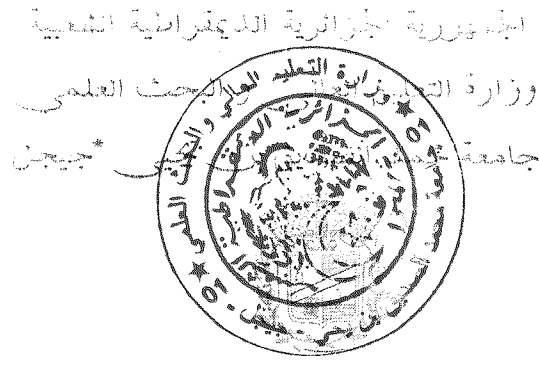 الجمهورية الجزائرية الديمقراطية الشعبية
وزارة التعليم العالي والبحث العلمي
جامعة محمد الصديق بن يحيى *جيجل
وزارة التعليم العالي والبحث العلمي
جامعة محمد الصديق بن يحي - جيجل
الجزائرية الديمقراطية
05
05